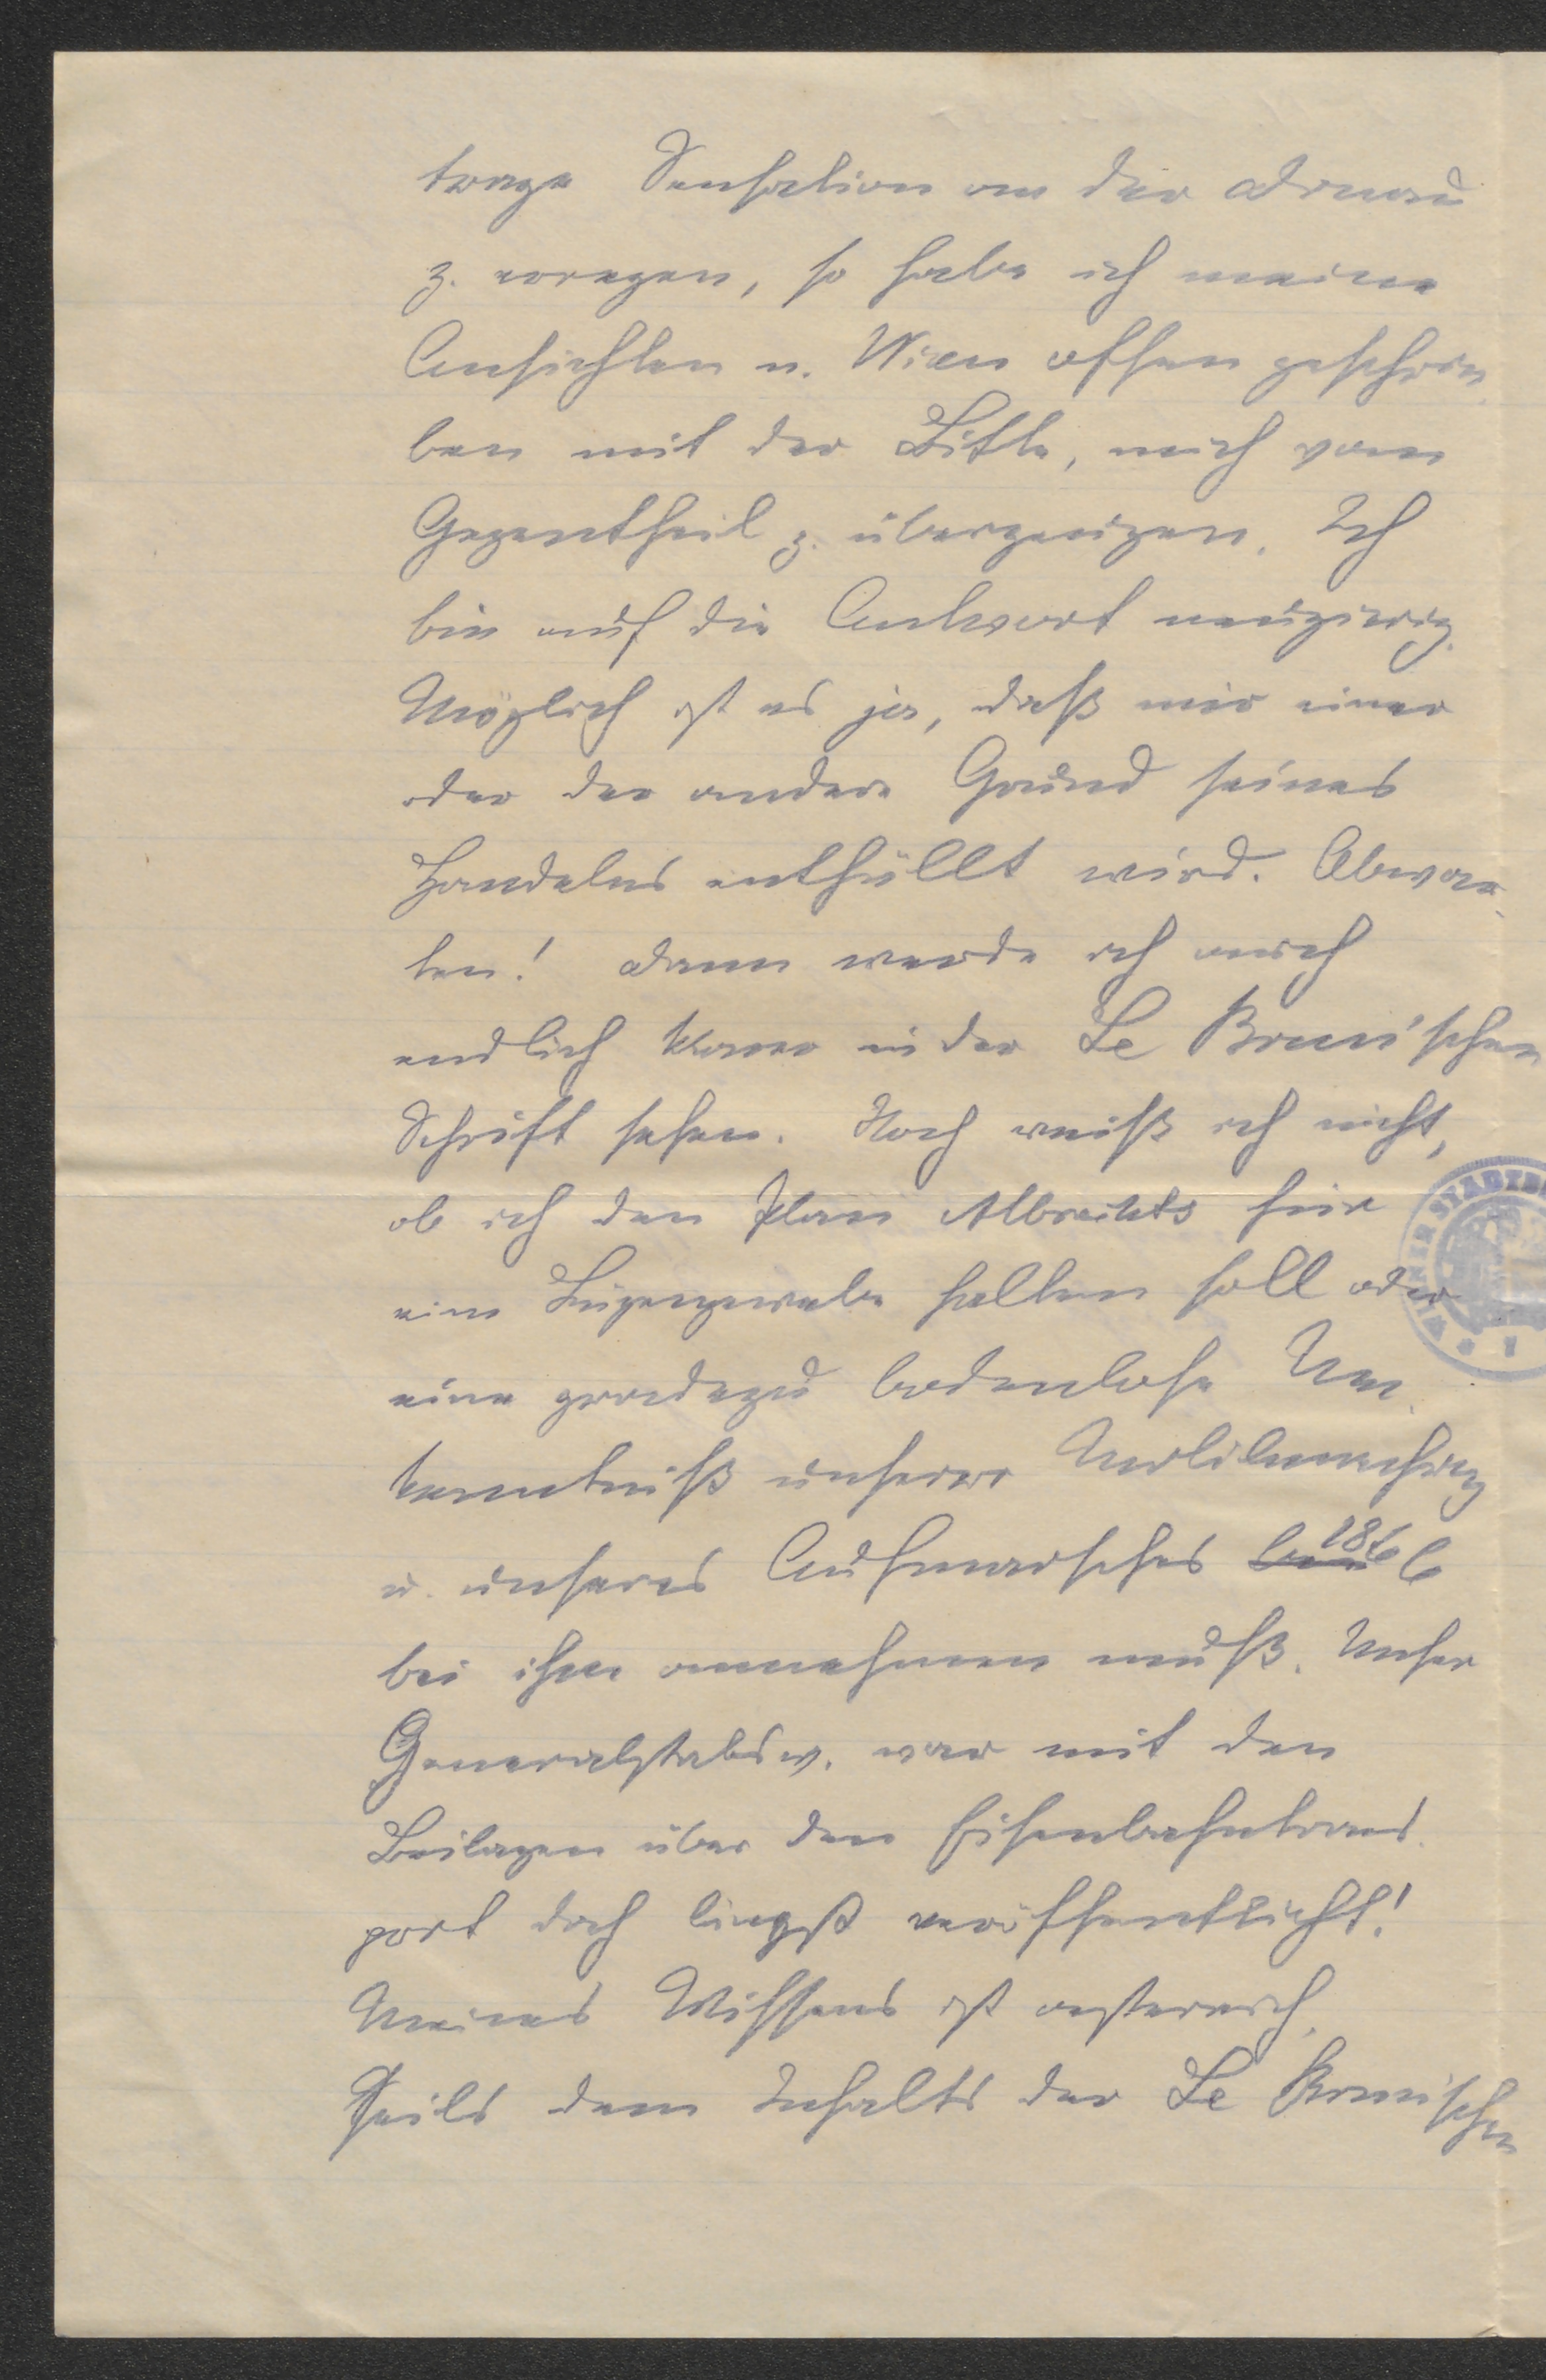 trage Sensation an der Donau
z. erregen, so habe ich meine
Ansichten n. Wien offen geschrie-
ben mit der Bitte, mich vom
Gegentheil z. überzeugen. Ich
bin auf die Antwort neugierig.
Möglich ist es ja, daß mir einer
oder der andere Grund seines
Handelns enthüllt wird. Abwar-
ten! Dann werde ich auch
endlich klarer in der Le Brun'schen
Schrift sehen. Noch weiß ich nicht,
ob ich den Plan Albrechts für
ein Lügengewebe halten soll oder
eine geradezu bodenlose Un-
kenntniß unserer Mobilmachung
u. unseres Aufmarsches 1866
bei ihm annehmen muß. Unser
Generalstabsw. war mit den
Beilagen über den Eisenbahntrans-
port doch längst veröffentlicht!
Meines Wissens ist oesterreich.
Theils dem Inhalts der Le Brunischen
WIENER STADTB